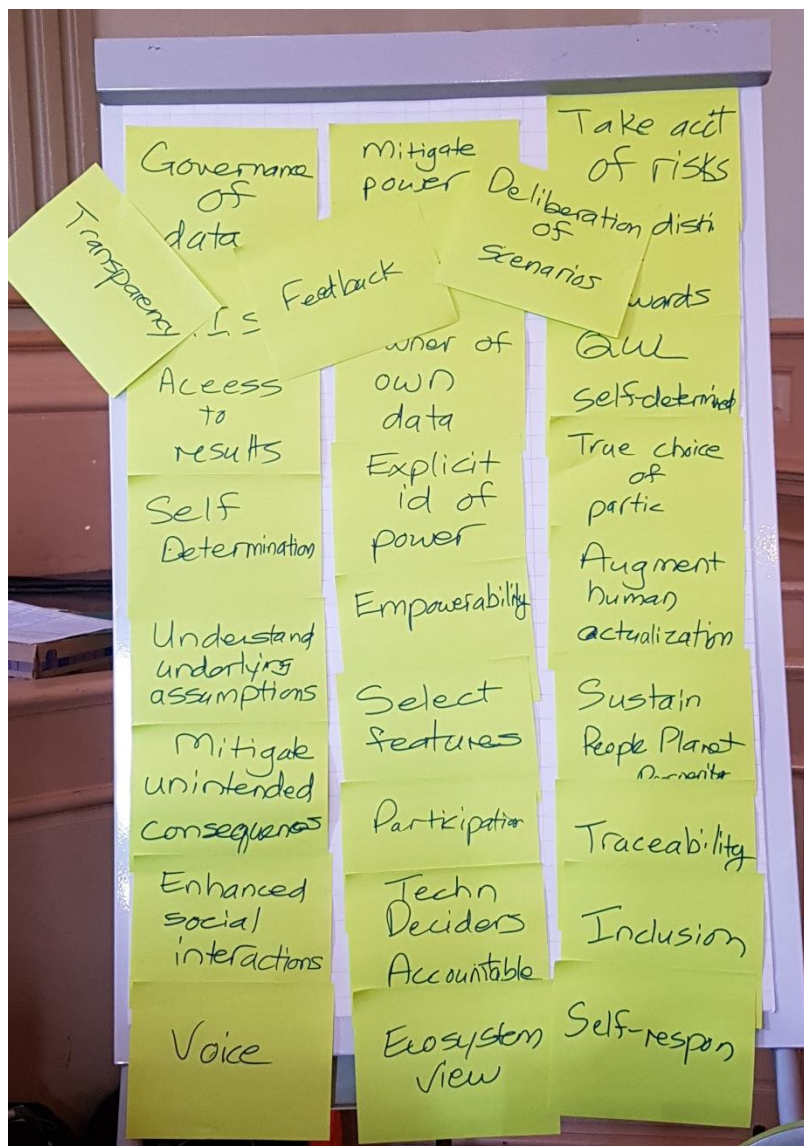 Governance
of
data
Transparency
I S
Access
to
results
Self
Determination
Understand
underlying
assumptions
Mitigate
unintended
consequences
Enhanced
social
interactions
Voice
Mitigate
power
Feedback
own
data
Explicit
id of
power
Empowerability
Select
features
Participation
Techn
Deciders
Accountable
Ecosystem
view
Take acct
of risks
Deliberation
of
scenarios
disti
wards
self-determined
True choice
of
partic
Augment
human
actualization
Sustain
People Planet
Traceability
Inclusion
Self-respon